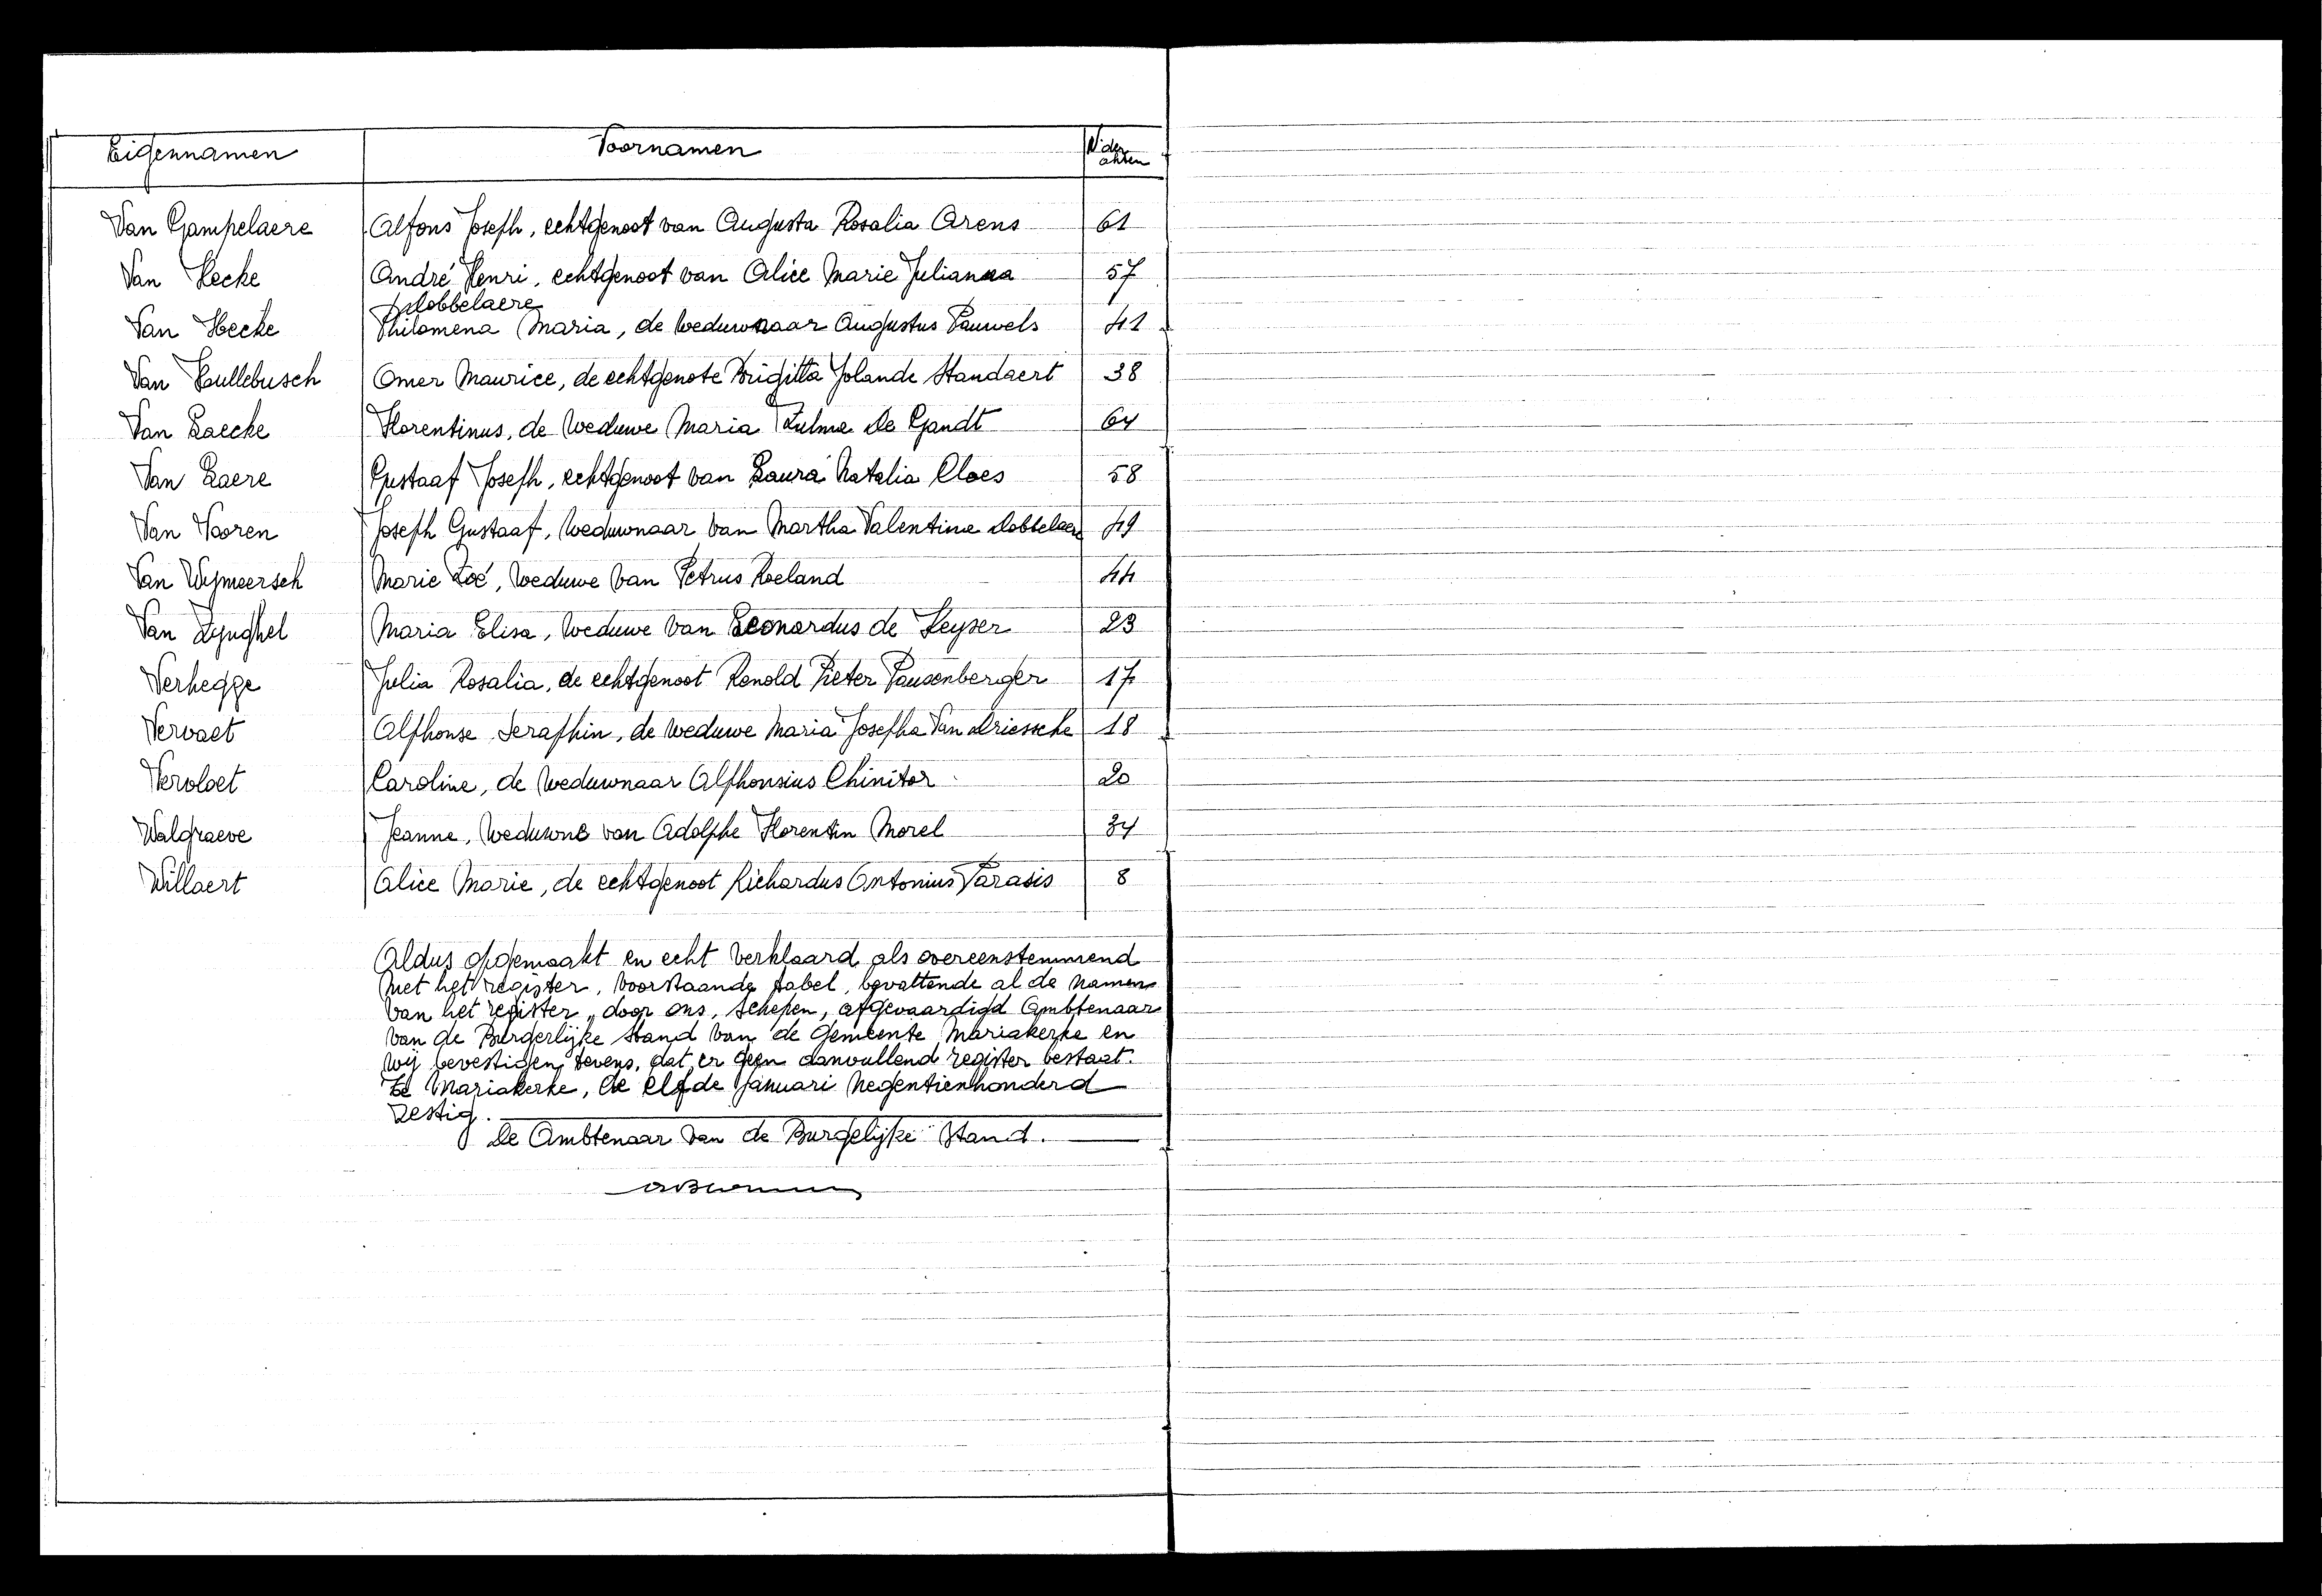 Eigennamen Voornamen N. der akten
Van Gampelaere Alfons Joseph, echtgenoot van Augusta Rosalia Arens 61
Van Hecke André Henri, echtgenoot van Alice Marie Julianna 57
Dobbelaere
Van Hecke Philomena Maria, de weduwnaar Augustus Pauwels 41
Van Hullebusch Omer Maurice, de echtgenote Brigitta Jolande Standaert 38
Van Laecke Florentinus, de weduwe Maria Zulma De Gandt 64
Van Laere Gustaaf Joseph, echtgenoot van Laura Natalia Claes 58
Van Vooren Joseph Gustaaf, weduwnaar van Martha Valentine Dobbelaere 49
Van Wymeersch Marie Zoé, weduwe van Petrus Roeland 44
Van Zynghel Maria Elisa, weduwe van Leonardus de Keyser 23
Verhegge Julia Rosalia, de echtgenoot Ronold Pieter Pausenberger 17
Vervaet Alphonse Seraphin, de weduwe Maria Josepha Van Driessche 18
Vervloet Caroline, de weduwnaar Alphonsius Chinitor 20
Walgraeve Jeanne, weduwne van Adolphe Florentin Morel 34
Willaert Alice Marie, de echtgenoot Richardus Antonius Parasis 8
Aldus opgemaakt en echt verklaard als overeenstemmend
met het register, voorstaande tabel, bevattende al de namen
van het register, door ons, schepen, afgevaardigd Ambtenaar
van de Burgerlijke stand van de Gemeente Mariakerke en
wij bevestigen tevens, dat er geen aanvullend register bestaat.
Te Mariakerke, de elfde Januari negentienhonderd
zestig.
De Ambtenaar van de Burgelijke Stand.